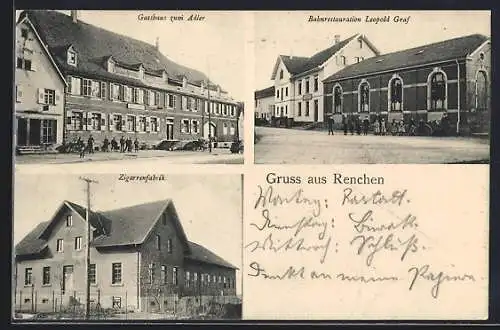 Gasthaus zum Adler
Bahnrestauration Leopold Graf
Zigarrenfabrik
Gruss aus Renchen
Montag: Rastatt.
Dienstag:
Mittwoch: Schluß.
Denkt an meine